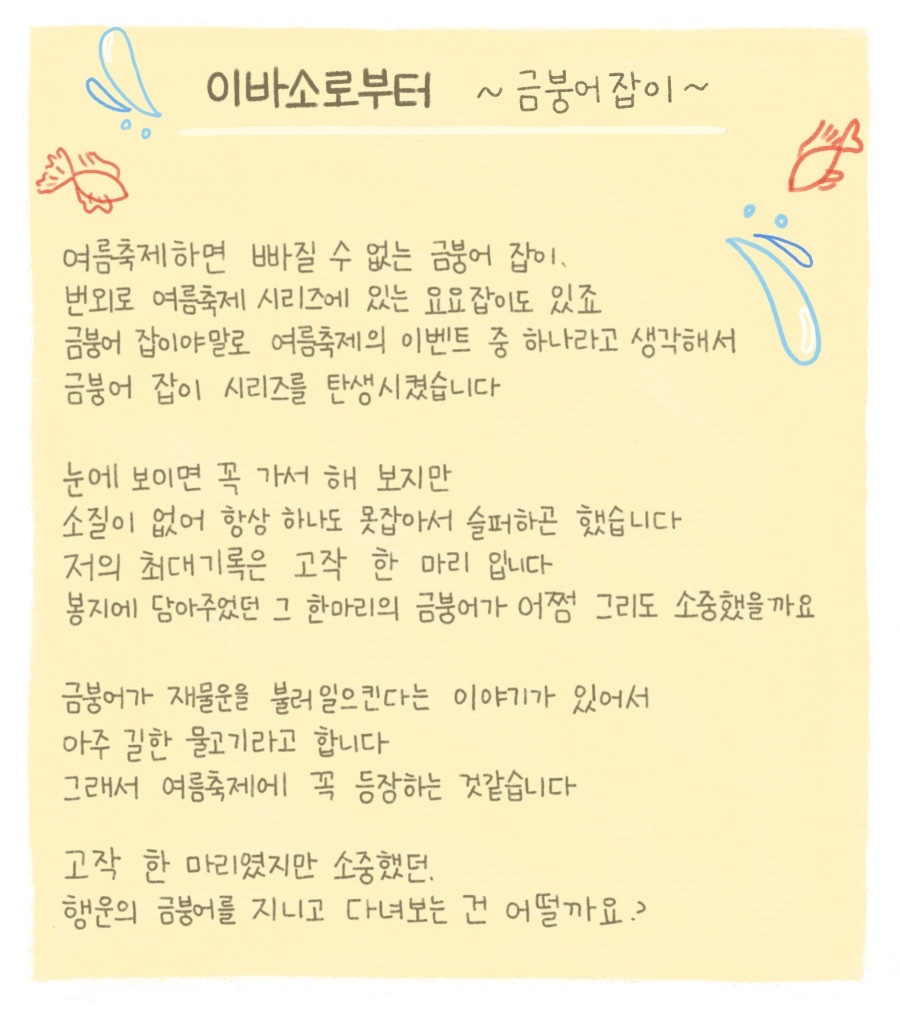 이바소로부터 ~금붕어잡이~
여름축제하면 빠질 수 없는 금붕어 잡이.
번외로 여름축제 시리즈에 있는 요요잡이도 있죠
금붕어 잡이야말로 여름축제의 이벤트 중 하나라고 생각해서
금붕어 잡이 시리즈를 탄생시켰습니다
눈에 보이면 꼭 가서 해 보지만
소질이 없어 항상 하나도 못잡아서 슬퍼하곤 했습니다
저의 최대기록은 고작 한 마리 입니다
봉지에 담아주었던 그 한마리의 금붕어가 어쩜 그리도 소중했을까요
금붕어가 재물운을 불러일으킨다는 이야기가 있어서
아주 길한 물고기라고 합니다
그래서 여름축제에 꼭 등장하는 것같습니다
고작 한 마리였지만 소중했던.
행운의 금붕어를 지니고 다녀보는 건 어떨까요?